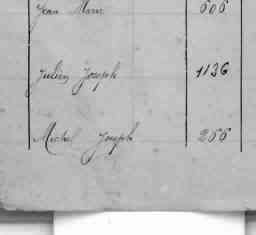 Jean Marie 606
Julien Joseph 1136
Michel Joseph 266